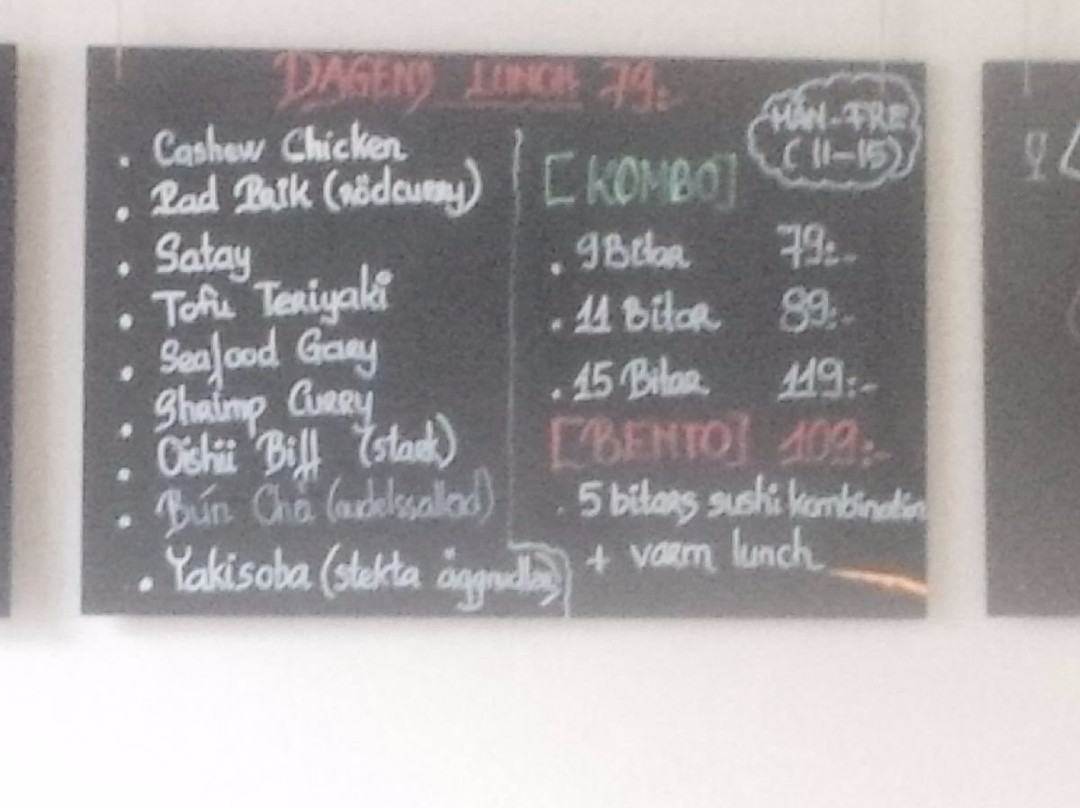 DAGENS LUNCH 79:
MÅN-FRE
(11-15)
. Cashew Chicken
. Pad Prik (rödcurry)
. Satay
. Tofu Teriyaki
. Seafood
. Shrimp Curry
. Oishii Biff (stark)
. Bún Chả (nudelssallad)
. Yakisoba (stekta äggnudlar)
[KOMBO]
. 9 Bitar 79:-
. 11 Bitar 89:-
. 15 Bitar 119:-
[BENTO] 109:-
. 5 bitars sushi kombination
+ varm lunch